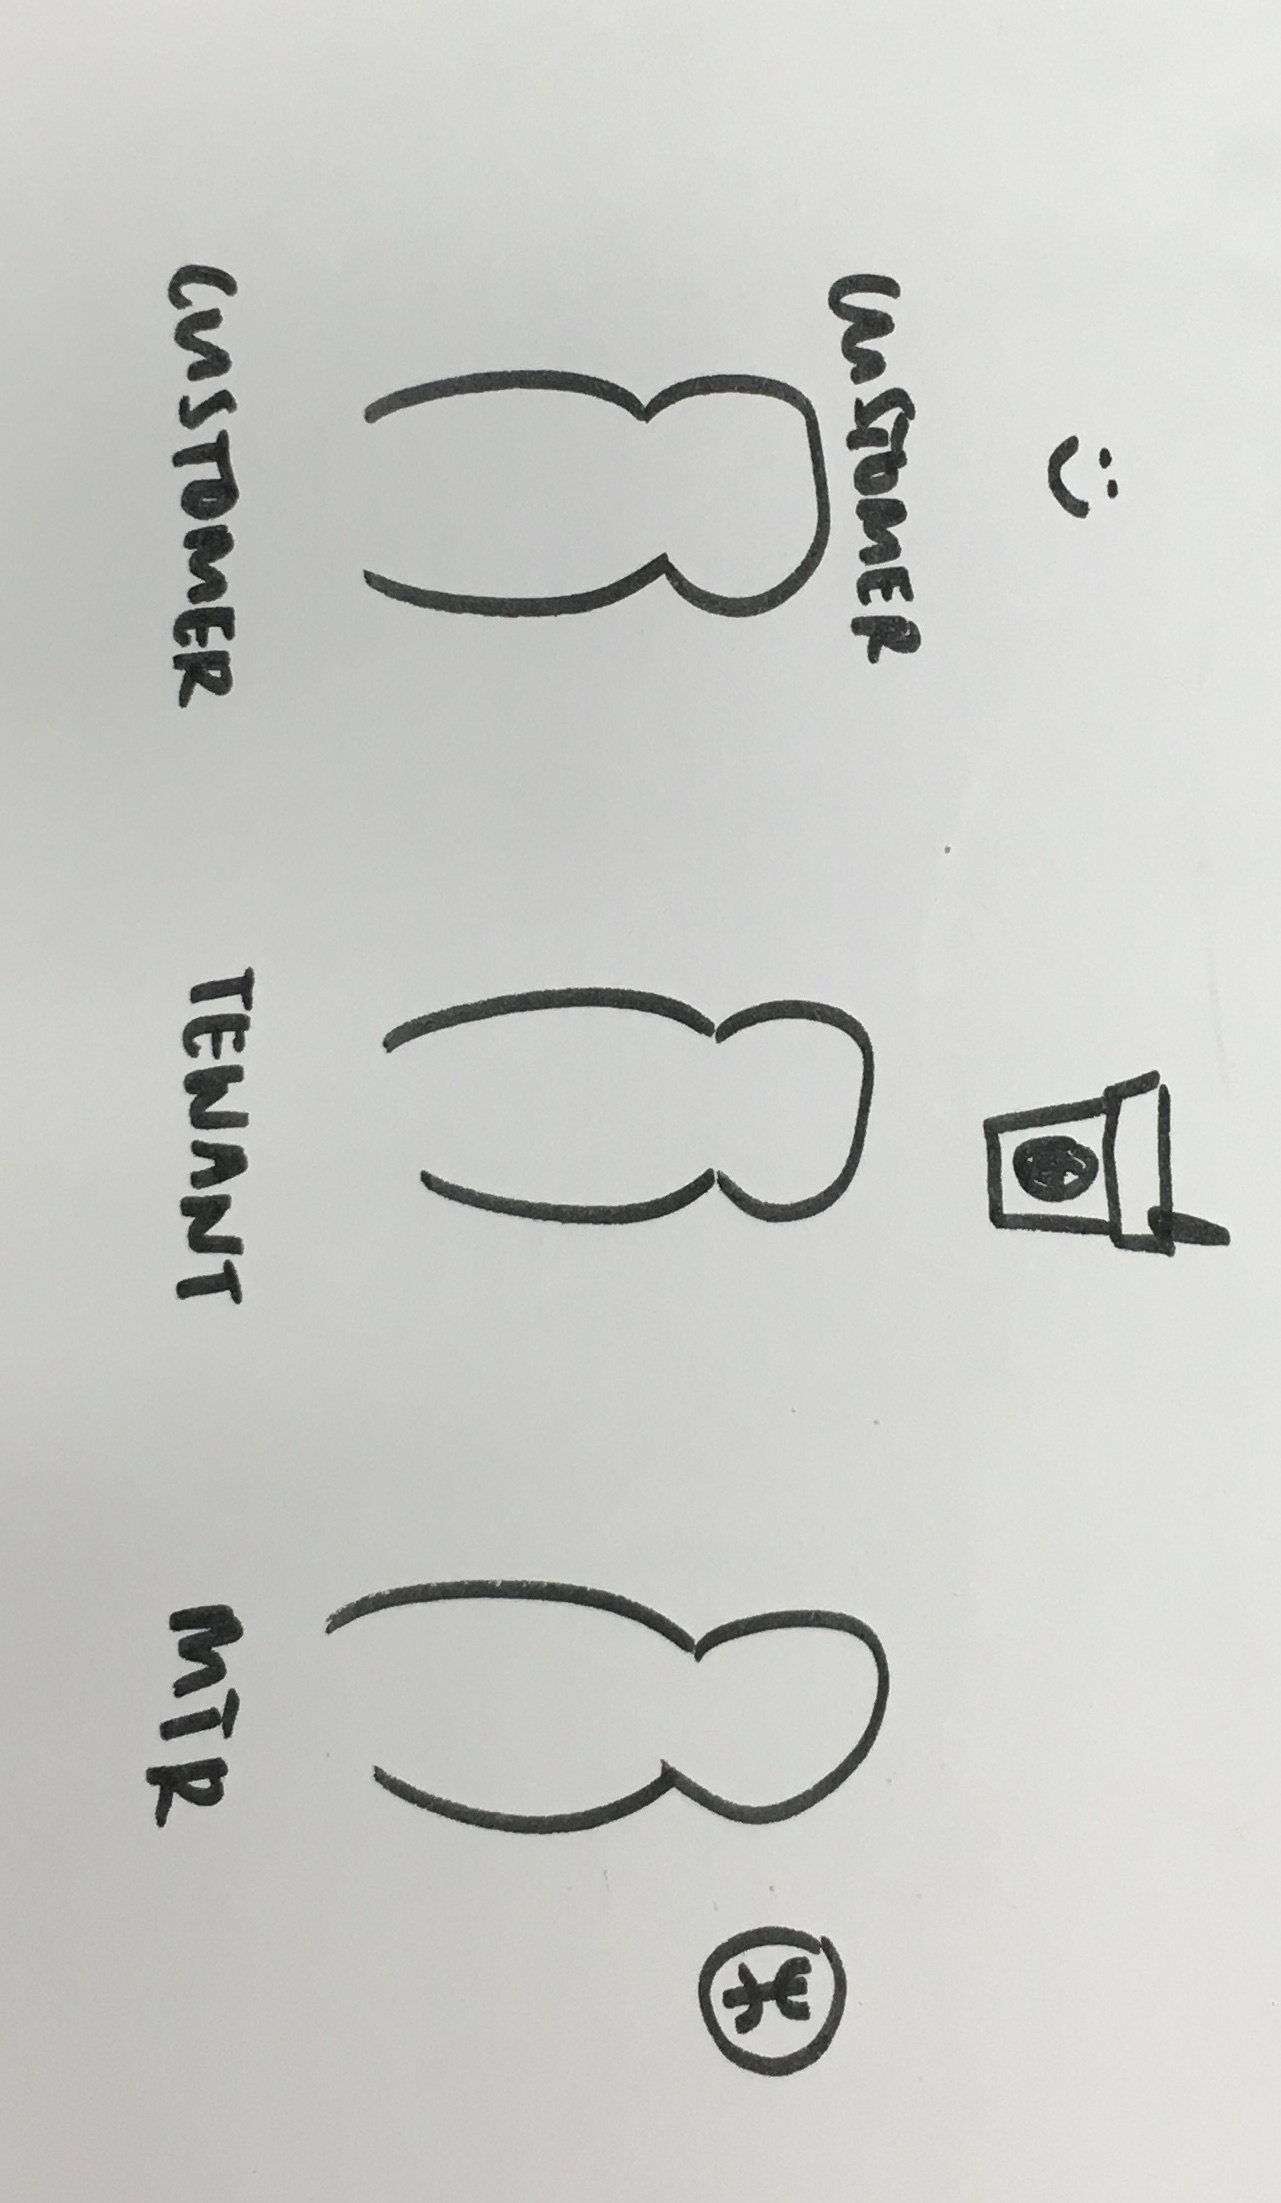 CUSTOMER
CUSTOMER TENANT MTR